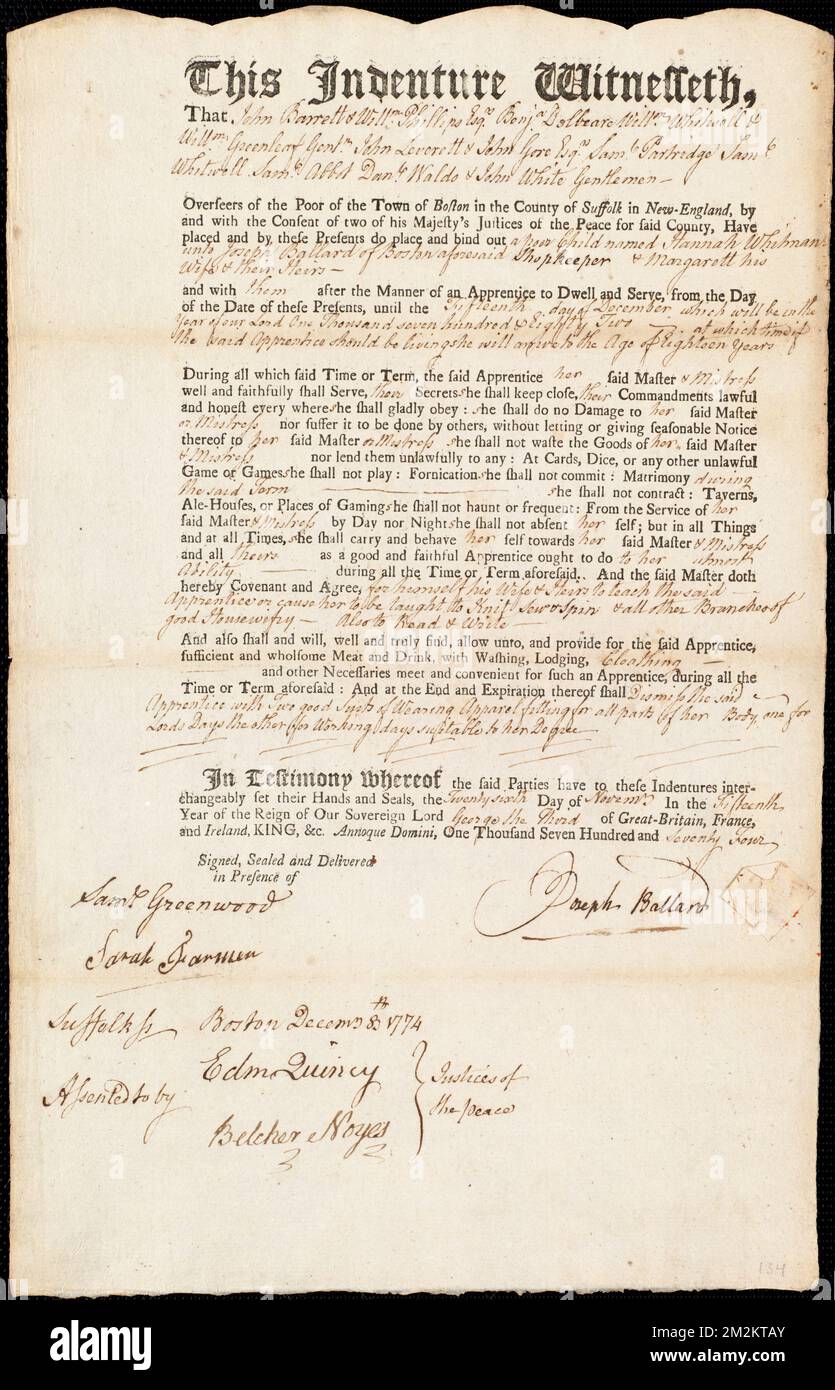 This Indenture Witnesseth,
That John Barrett & Willm Phillips Esqs Benja Dolbeare Willm Whitwell &
Willm Greenleaf Gentn John Leverett & John Gore Esqs Saml Partridge Saml
Whitwell Saml Abbot Danl Waldo & John White Gentlemen —
Overseers of the Poor of the Town of Boston in the County of Suffolk in New-England, by
and with the Consent of two of his Majesty's Justices of the Peace for said County, Have
placed and by these Presents do place and bind out a poor Child named Hannah Whitman
unto Joseph Ballard of Boston aforesaid Shopkeeper & Margarett his
Wife & their Heirs —
and with them after the Manner of an Apprentice to Dwell and Serve, from the Day
of the Date of these Presents, until the Fifteenth day of December which will be in the
Year of our Lord One Thousand seven hundred & Eighty Two — at which time if
the said Apprentice should be living she will arrive to the Age of Eighteen Years
During all which said Time or Term, the said Apprentice her said Master & Mistress
well and faithfully shall Serve, their Secrets she shall keep close, their Commandments lawful
and honest every where she shall gladly obey: she shall do no Damage to her said Master
or Mistress nor suffer it to be done by others, without letting or giving seasonable Notice
thereof to her said Master or Mistress she shall not waste the Goods of her said Master
& Mistress nor lend them unlawfully to any: At Cards, Dice, or any other unlawful
Game or Games she shall not play: Fornication she shall not commit: Matrimony during
the said Term — she shall not contract: Taverns,
Ale-Houses, or Places of Gaming she shall not haunt or frequent: From the Service of her
said Master & Mistress by Day nor Night she shall not absent her self; but in all Things
and at all Times, she shall carry and behave her self towards her said Master & Mistress
and all theirs as a good and faithful Apprentice ought to do to her utmost
Ability — during all the Time or Term aforesaid. And the said Master doth
hereby Covenant and Agree, for himself his Wife & Heirs to teach the said —
Apprentice or cause her to be taught to Knit Sew & Spin & all other Branches of
good Housewifry — Also to Read & Write —
And also shall and will, well and truly find, allow unto, and provide for the said Apprentice,
sufficient and wholsome Meat and Drink, with Washing, Lodging, Cloathing —
— and other Necessaries meet and convenient for such an Apprentice, during all the
Time or Term aforesaid: And at the End and Expiration thereof shall Dismiss the said —
Apprentice with Two good Suits of Wearing Apparel fitting for all parts of her Body, one for
Lords Days the other for Working days suitable to her Degree
In Testimony whereof the said Parties have to these Indentures inter-
changeably set their Hands and Seals, the Twenty sixth Day of Novemr In the Fifteenth
Year of the Reign of Our Sovereign Lord George the Third of Great-Britain, France,
and Ireland, KING, &c. Annoque Domini, One Thousand Seven Hundred and Seventy Four
Signed, Sealed and Delivered
in Presence of
Joseph Ballard
Saml Greenwood
Sarah
Suffolk ss Boston Decemr 8th 1774
Assented to by
Edm Quincy
Belcher Noyes
Justices of
the peace
134
alamy
Image ID: 2M2KTAY
www.alamy.com